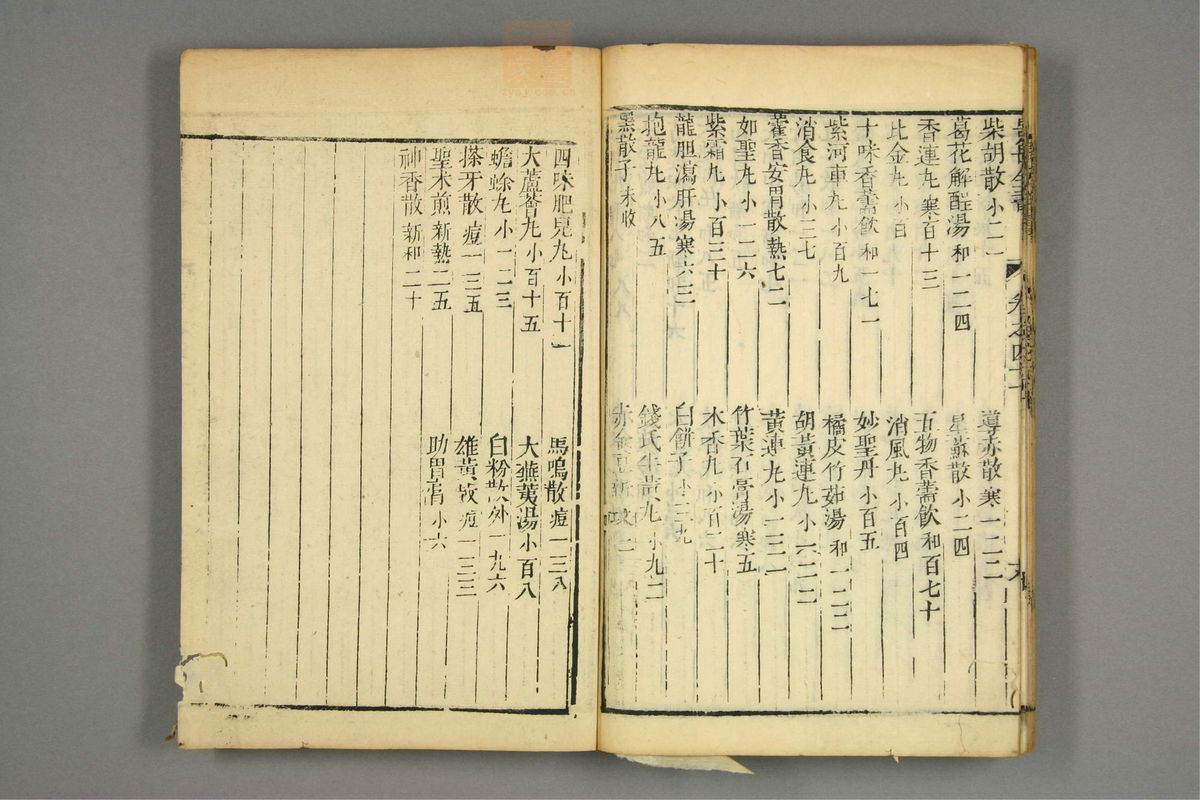 景岳全書
卷之四十
柴胡散小二一
導赤散寒一二二
葛花解酲湯和一二四
星蘇散小二四
香連丸寒百十三
五物香薷飲和百七十
比金丸小百
消風丸小百四
十味香薷飲和一七一
妙聖丹小百五
紫河車丸小百九
橘皮竹茹湯和一二二
消食丸小三七
胡黃連丸小一二二
藿香安胃散熱七二
黃連丸小一三一
如聖丸小一二六
竹葉石膏湯寒五
紫霜丸小百三十
木香丸小百二十
龍胆瀉肝湯寒六三
白餅子小三九
抱龍丸小八五
錢氏牛黃丸小九二
黑散子未收
赤金豆新攻二
四味肥兒丸小百十一
馬鳴散痘一三八
大蘆薈丸小百十五
大蕪荑湯小百八
蟾蜍丸小一二三
白粉散外一九六
搽牙散痘一三五
雄黃散痘一三三
聖朮煎新熱二五
助胃膏小六
神香散新和二十